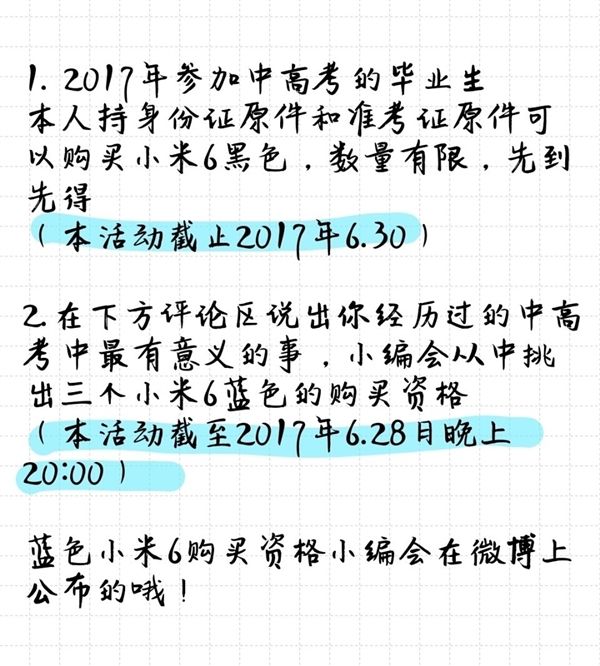 1. 2017年参加中高考的毕业生
本人持身份证原件和准考证原件可
以购买小米6黑色，数量有限，先到
先得
（本活动截止2017年6.30）
2.在下方评论区说出你经历过的中高
考中最有意义的事，小编会从中挑
出三个小米6蓝色的购买资格
（本活动截至2017年6.28日晚上
20:00）
蓝色小米6购买资格小编会在微博上
公布的哦！